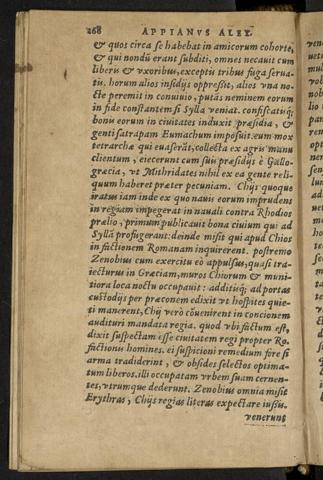 268 APPIANVS ALEX.
& quos circa se habebat in amicorum cohorte,
& qui nondū erant subditi, omnes necauit cum
liberis & vxoribus, exceptis tribus fuga serua-
tis. horum alios insidijs oppressit, alios vna no-
cte peremit in conuiuio, putās neminem eorum
in fide constantem si Sylla veniat. confiscatiq́;
bonis eorum in ciuitates induxit præsidia, &
genti satrapam Eumachum imposuit. eum mox
tetrarchæ qui euaserāt, collecta ex agris manu
clientum, eiecerunt cum suis præsidijs è Gallo-
græcia, vt Mithridates nihil ex ea gente reli-
quum haberet præter pecuniam. Chijs quoque
iratus iam inde ex quo nauis eorum imprudens
in regiam impegerat in nauali contra Rhodios
prælio, primum publicauit bona ciuium qui ad
Syllā profugerant: deinde misit qui apud Chios
in factionem Romanam inquirerent. postremo
Zenobius cum exercitu eò appulsus, quasi tra-
iecturus in Græciam, muros Chiorum & muni-
tiora loca noctu occupauit: additisq́; ad portas
custodijs per præconem edixit vt hospites quie-
ti manerent, Chij verò cōuenirent in concionem
audituri mandata regis. quod vbi factum est,
dixit suspectam esse ciuitatem regi propter Ro.
factionis homines. ei suspicioni remedium fore si
arma tradiderint, & obsides selectos optima-
tum liberos. illi occupatam vrbem suam cernen-
tes, vtrumque dederunt. Zenobius omnia misit
Erythras, Chijs regias literas expectare iussis.
venerunt